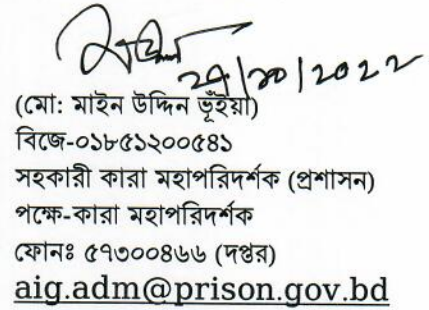 ২৭/১০/২০২২
(মো: মাইন উদ্দিন ভূঁইয়া)
বিজে-০১৮৫১২০০৫৪১
সহকারী কারা মহাপরিদর্শক (প্রশাসন)
পক্ষে-কারা মহাপরিদর্শক
ফোনঃ ৫৭৩০০৪৬৬ (দপ্তর)
aig.adm@prison.gov.bd